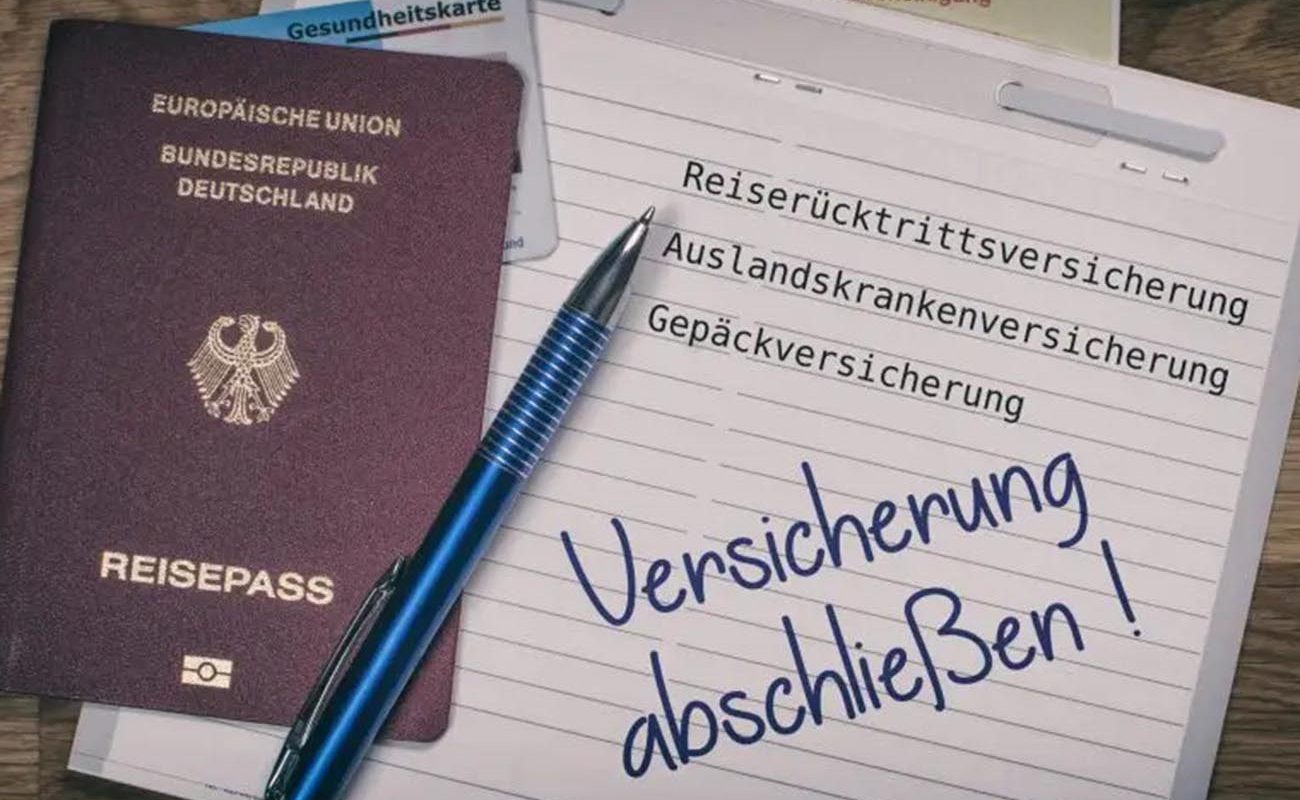 Gesundheitskarte
EUROPÄISCHE UNION
BUNDESREPUBLIK
DEUTSCHLAND
REISEPASS
Reiserücktrittsversicherung
Auslandskrankenversicherung
Gepäckversicherung
Versicherung
abschließen!